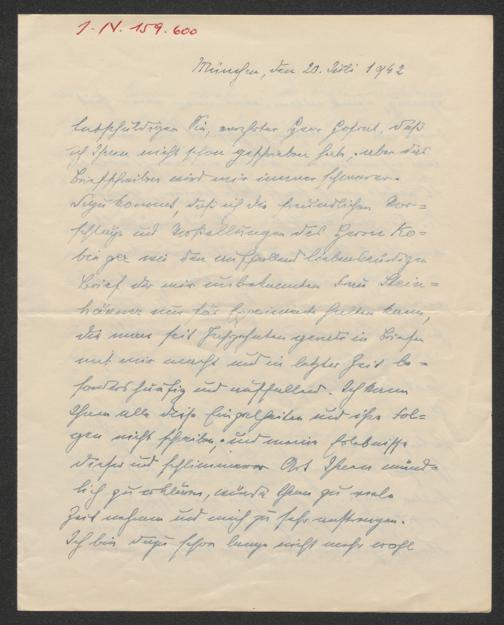 J. N. 159.600
München, den 20. Juli 1942
Entschuldigen Sie, verehrter Herr Hofrat, daß
ich Ihnen nicht schon geschrieben habe, aber das
Briefschreiben wird mir immer schwerer.
Dazu kommt, daß ich die freundlichen Vor=
schläge und Vorstellungen des Herrn Ko=
wie den auffallend liebenswürdigen
Brief der mir unbekannten Frau Stein=
nur für Experimente halten kann,
die man seit Jahrzehnten gerade in Briefen
mit mir macht und in letzter Zeit be=
sonders häufig und auffallend. Ich kann
Ihnen alle diese Einzelheiten und ihre Fol=
gen nicht schreiben, und meine Erlebnisse
dieser und schlimmerer Art Ihnen münd=
lich zu erklären, würde Ihnen zu viele
Zeit nehmen und mich zu sehr anstrengen.
Ich bin dazu schon lange nicht mehr wohl